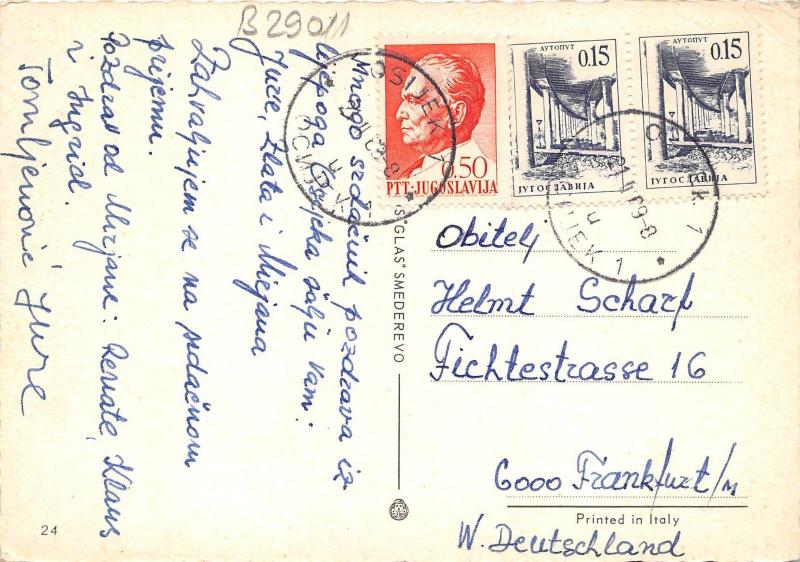 B 29011
Mnogo srdačnih pozdrava iz
lijepoga Osijeka šalju Vam:
Jure, Zlata i Mirjana
Zahvaljujem se na srdačnom
prijemu.
Pozdrav od Mirjane: Renate, Klaus
i Ingrid.
Tomljenović Jure
24
0.50
PTT-JUGOSLAVIJA
АУТОПУТ
0.15
ЈУГОСЛАВИЈА
АУТОПУТ
0.15
ЈУГОСЛАВИЈА
OSIJEK 1
ОСИЈЕК 1
"GLAS" SMEDEREVO
Obitelj
Helmt Scharf
Fichtestrasse 16
6000 Frankfurt/M
Printed in Italy
W. Deutschland